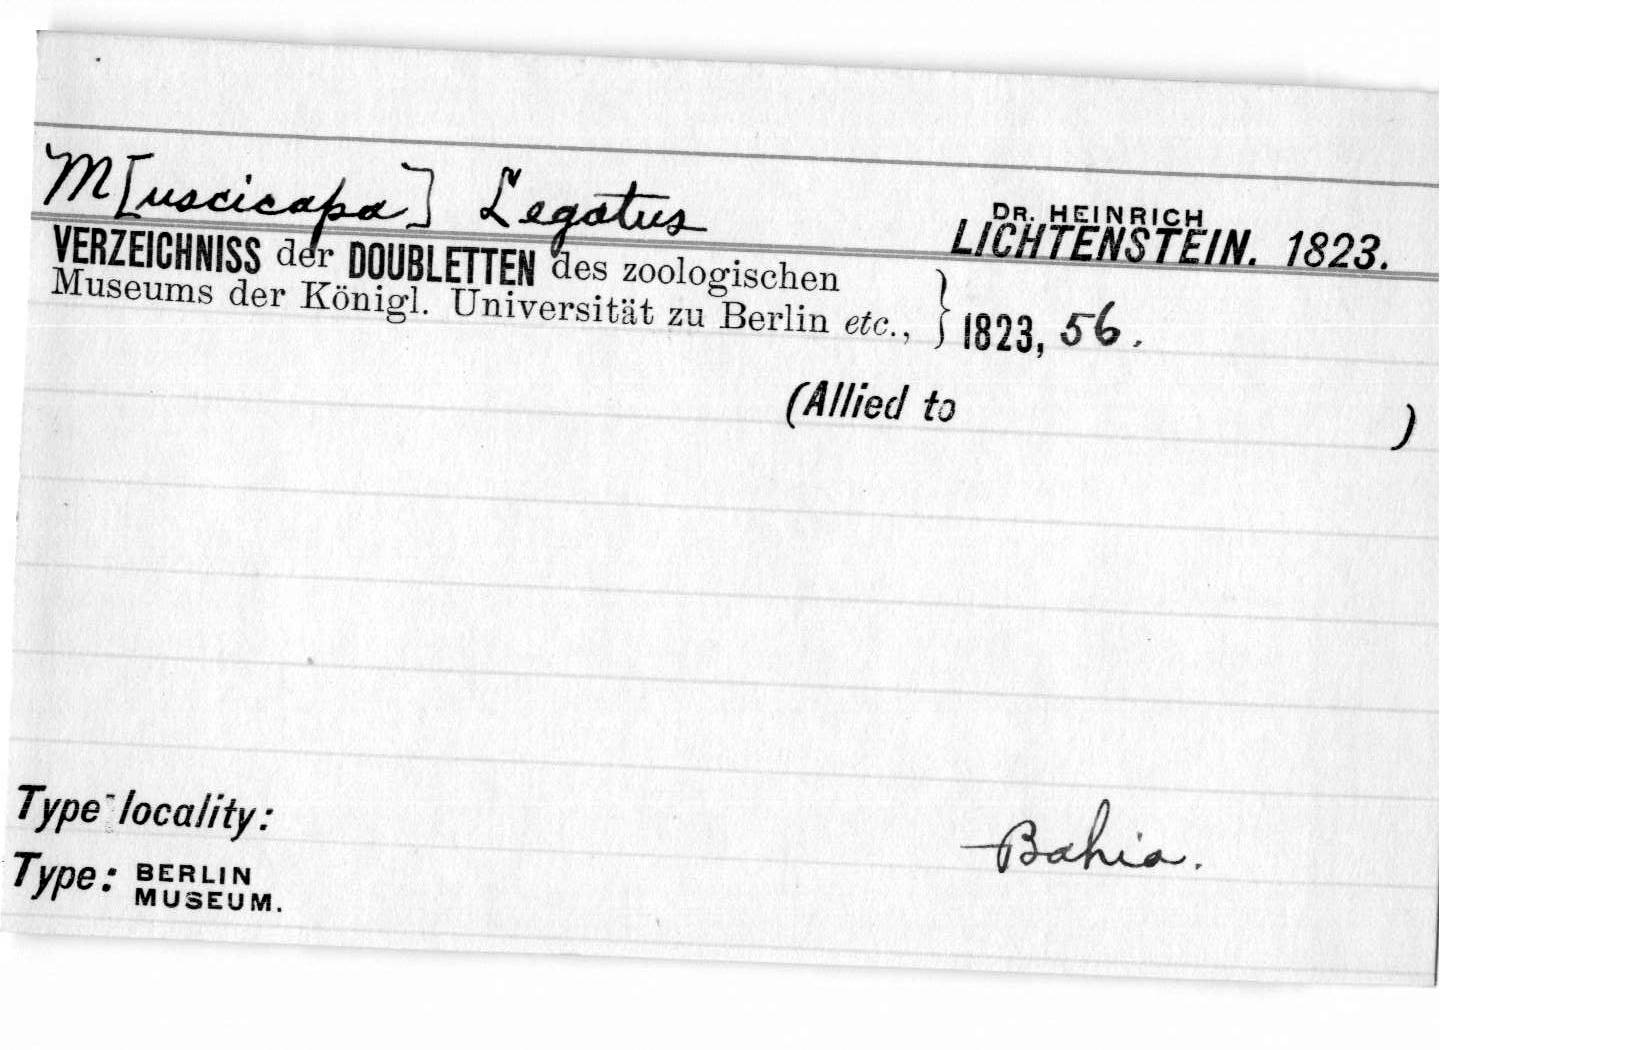 M[uscicapa] Legatus
DR. HEINRICH
LICHTENSTEIN. 1823.
VERZEICHNISS der DOUBLETTEN des zoologischen
Museums der Königl. Universität zu Berlin etc., } 1823, 56.
(Allied to )
Type-locality: Bahia.
Type: BERLIN
MUSEUM.